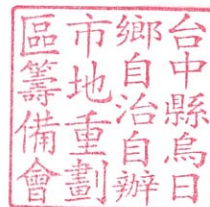 台中縣烏日
鄉自治自辦
市地重劃
區籌備會